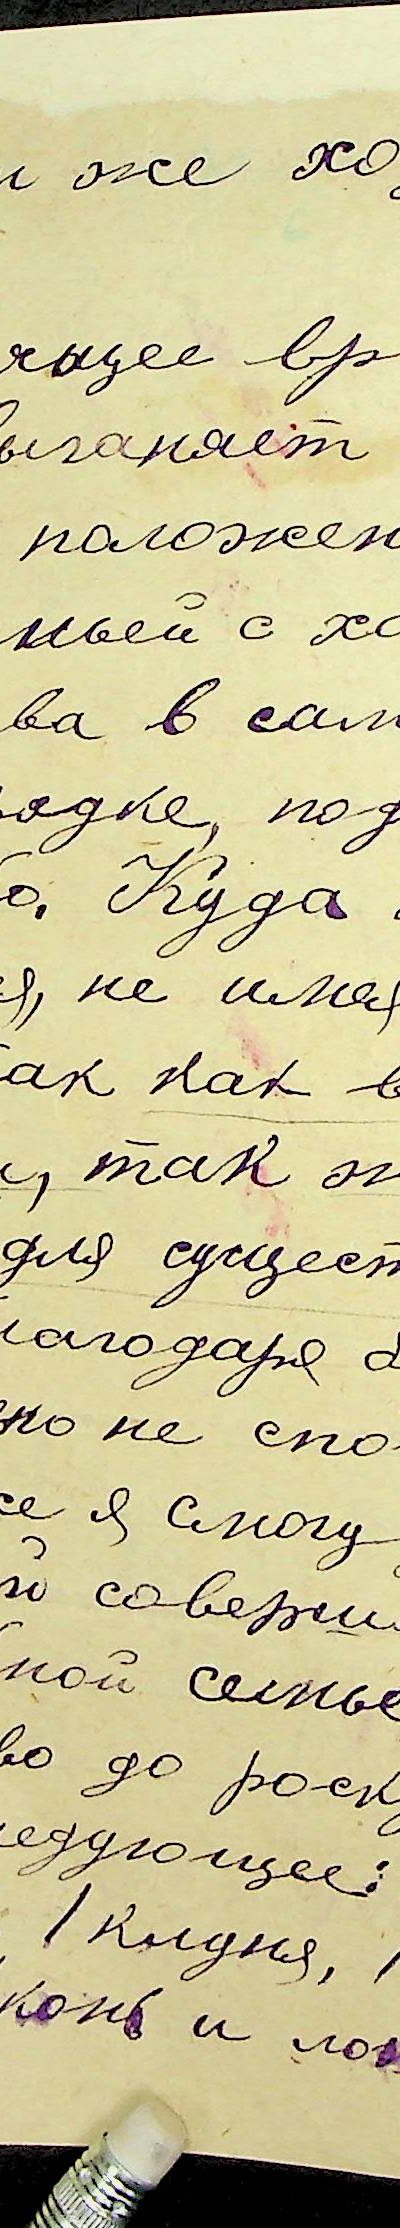 и же хо
ящее вр
выганяет
положен
мьей с хо
ва в сам
радке, под
о. Куда
я, не имея
так как в
и, так ж
для сущест
лагодаря
но не спо
се я смогу
й соверш
ной семье
во до раск
ледующее:
1 клудня,
конь и ло